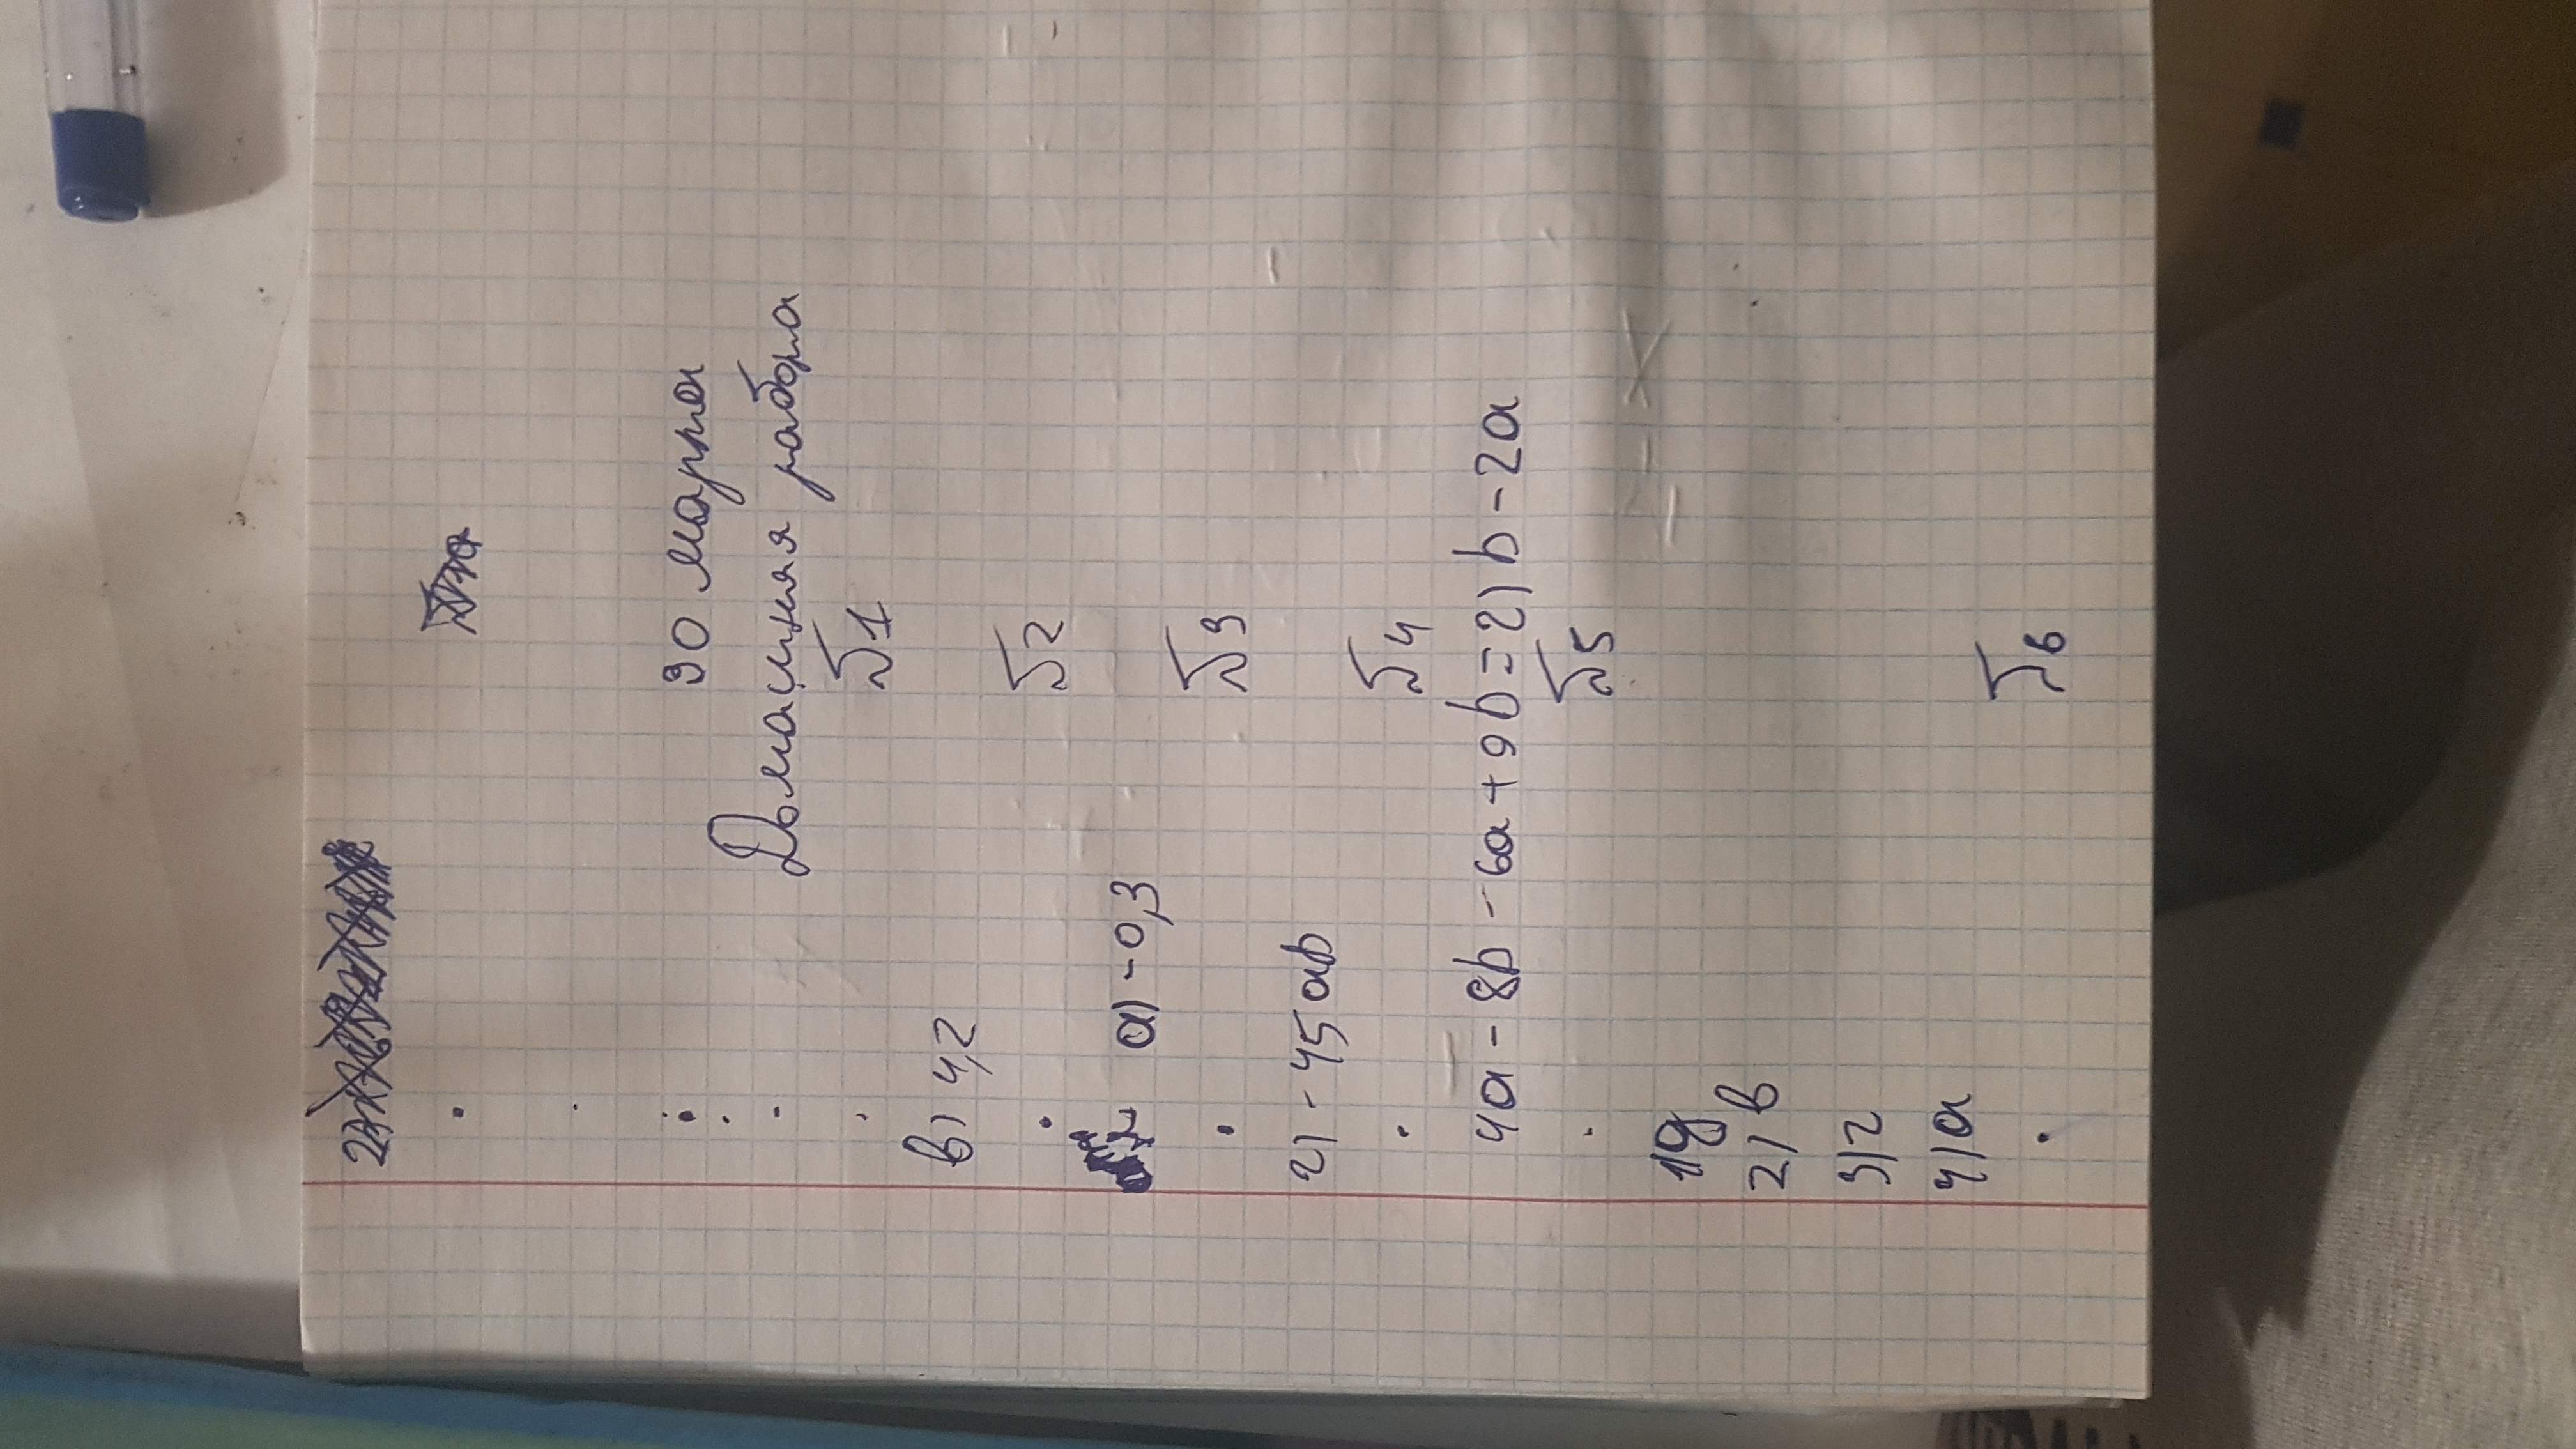 30 марта
Домашняя работа
№1
в) 4,2
№2
а) -0,3
№3
г) - 45ab
№4
4a - 8b - 6a + 9b = г) b - 2a
№5
1д
2) в
3) г
4) а
№6